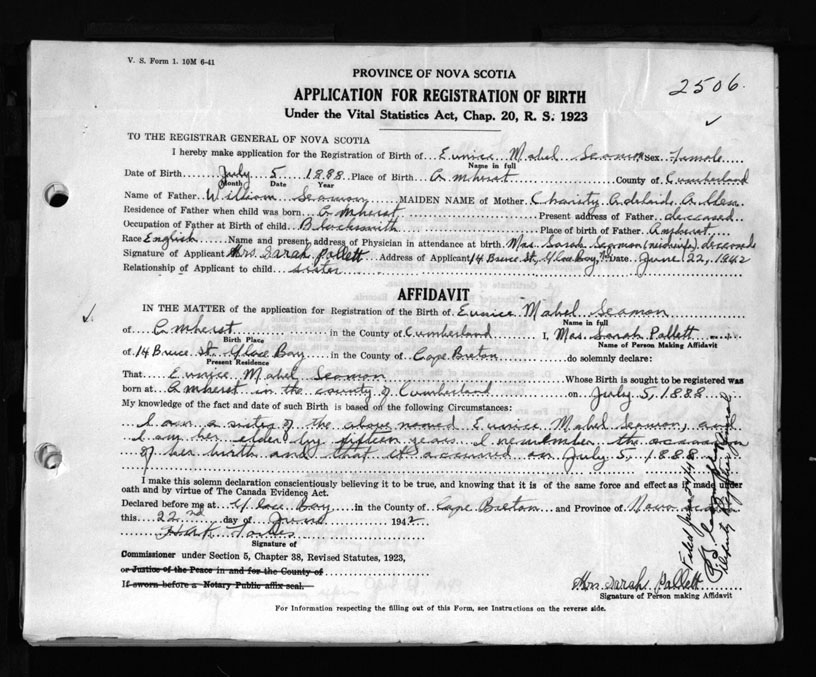 V. S. Form 1. 10M 6-41
PROVINCE OF NOVA SCOTIA
2506.
APPLICATION FOR REGISTRATION OF BIRTH
Under the Vital Statistics Act, Chap. 20, R. S. 1923
TO THE REGISTRAR GENERAL OF NOVA SCOTIA
I hereby make application for the Registration of Birth of Eunice Mabel Seamon Sex Female
Name in full
Date of Birth July 5 1888 Place of Birth Amherst County of Cumberland
Month Date Year
Name of Father William Seamon MAIDEN NAME of Mother Charity Adelaide Allen
Residence of Father when child was born Amherst Present address of Father deceased
Occupation of Father at Birth of child Blacksmith Place of birth of Father Amherst
Race English Name and present address of Physician in attendance at birth Mrs. Sarah Seamon (midwife) deceased
Signature of Applicant Mrs. Sarah Pallett Address of Applicant 14 Bruce St, Glace Bay, Date June 22, 1942
Relationship of Applicant to child sister
AFFIDAVIT
IN THE MATTER of the application for Registration of the Birth of Eunice Mabel Seamon
Name in full
of Amherst in the County of Cumberland I, Mrs. Sarah Pallett
Birth Place Name of Person Making Affidavit
of 14 Bruce St. Glace Bay in the County of Cape Breton do solemnly declare:
Present Residence
That Eunice Mabel Seamon Whose Birth is sought to be registered was
born at Amherst in the county of Cumberland on July 5, 1888
My knowledge of the fact and date of such Birth is based on the following Circumstances:
I am a sister of the above named Eunice Mabel Seamon, and
I am her elder by fifteen years. I remember the occasion
of her birth and that it occurred on July 5, 1888
I make this solemn declaration conscientiously believing it to be true, and knowing that it is of the same force and effect as if made under
oath and by virtue of The Canada Evidence Act.
Declared before me at Glace Bay in the County of Cape Breton and Province of Nova Scotia
this 22nd day of June 1942
Signature of
Commissioner under Section 5, Chapter 38, Revised Statutes, 1923,
or Justice of the Peace in and for the County of
If sworn before a Notary Public affix seal.
Mrs. Sarah Pallett
Signature of Person making Affidavit
For Information respecting the filling out of this Form, see Instructions on the reverse side.